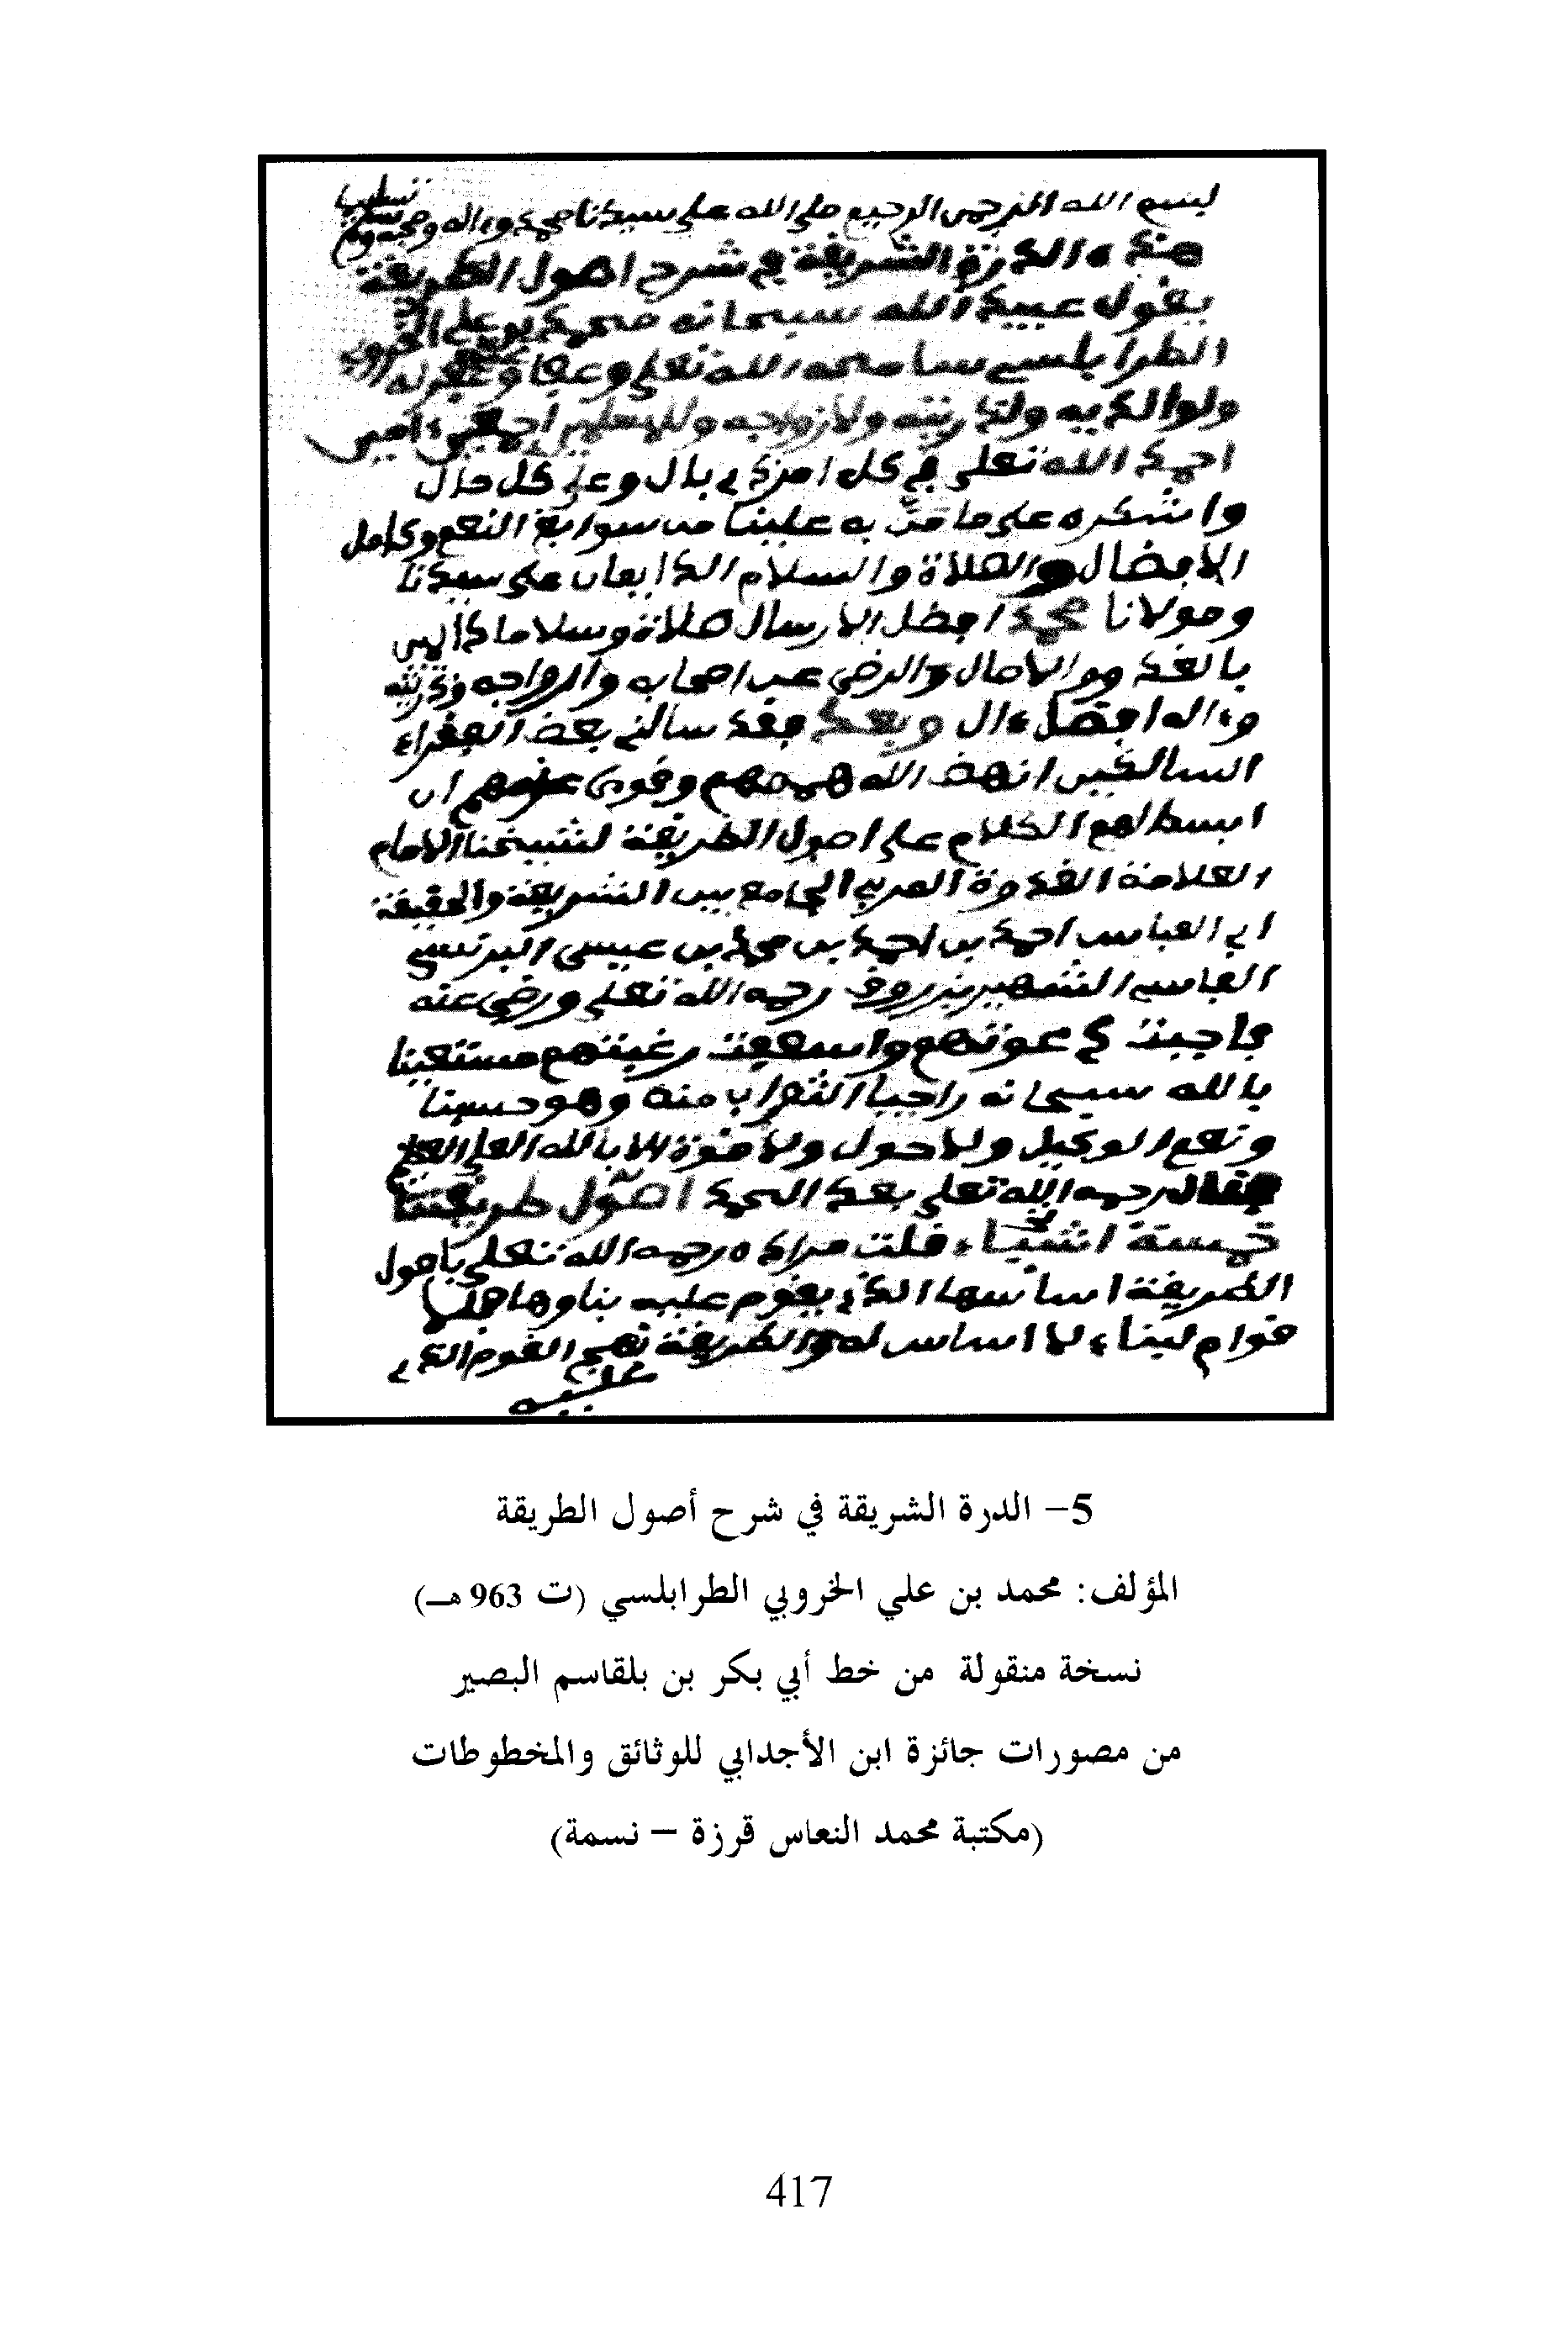 بسم الله الرحمن الرحيم صلى الله على سيدنا محمد وءاله وصحبه وسلم تسليما
هذه الدرة الشريفة في شرح اصول الطريقة
يقول عبيد الله سبحانه محمد بن علي الخروبي
الطرابلسي سامحه الله تعلى وعفا وغفر له
ولوالديه ولذريته ولازواجه وللمسلمين اجمعين ءامين
احمد الله تعلى في كل امر ذي بال وعلى كل حال
واشكره على ما من به علينا من سوابغ النعم وكامل
الافضال والصلاة والسلام الدايمان على سيدنا
ومولانا محمد افضل الارسال صلاة وسلاما دايمين
بالغدو والاصال والرضى عن اصحابه وازواجه وذريته
وءاله افضل ءال وبعد فقد سالني بعض الفقراء
السالكين انهض الله هممهم وقوى عزمهم ان
ابسط لهم الكلام على اصول الطريقة لشيخنا الامام
العلامة القدوة المربي الجامع بين الشريعة والحقيقة
ابي العباس احمد بن احمد بن محمد بن عيسى البرنسي
الفاسي الشهير بزروق رحمه الله تعلى ورضي عنه
فاجبت دعوتهم واسعفت رغبتهم مستعينا
بالله سبحانه راجيا الثواب منه وهو حسبنا
ونعم الوكيل ولا حول ولا قوة الا بالله العلي العظيم
فقال رحمه الله تعلى بعد الحمد اصول طريقتنا
خمسة اشياء قلت مراده رحمه الله تعلى باصول
الطريقة اساسها الذي يقوم عليه بناوها
قوام لبناء لا اساس له والطريقة نهج القوم الذي
عليه
5– الدرة الشريقة في شرح أصول الطريقة
المؤلف: محمد بن علي الخروبي الطرابلسي (ت 963 هـ)
نسخة منقولة من خط أبي بكر بن بلقاسم البصير
من مصورات جائزة ابن الأجدابي للوثائق والمخطوطات
(مكتبة محمد النعاس قرزة – نسمة)
417